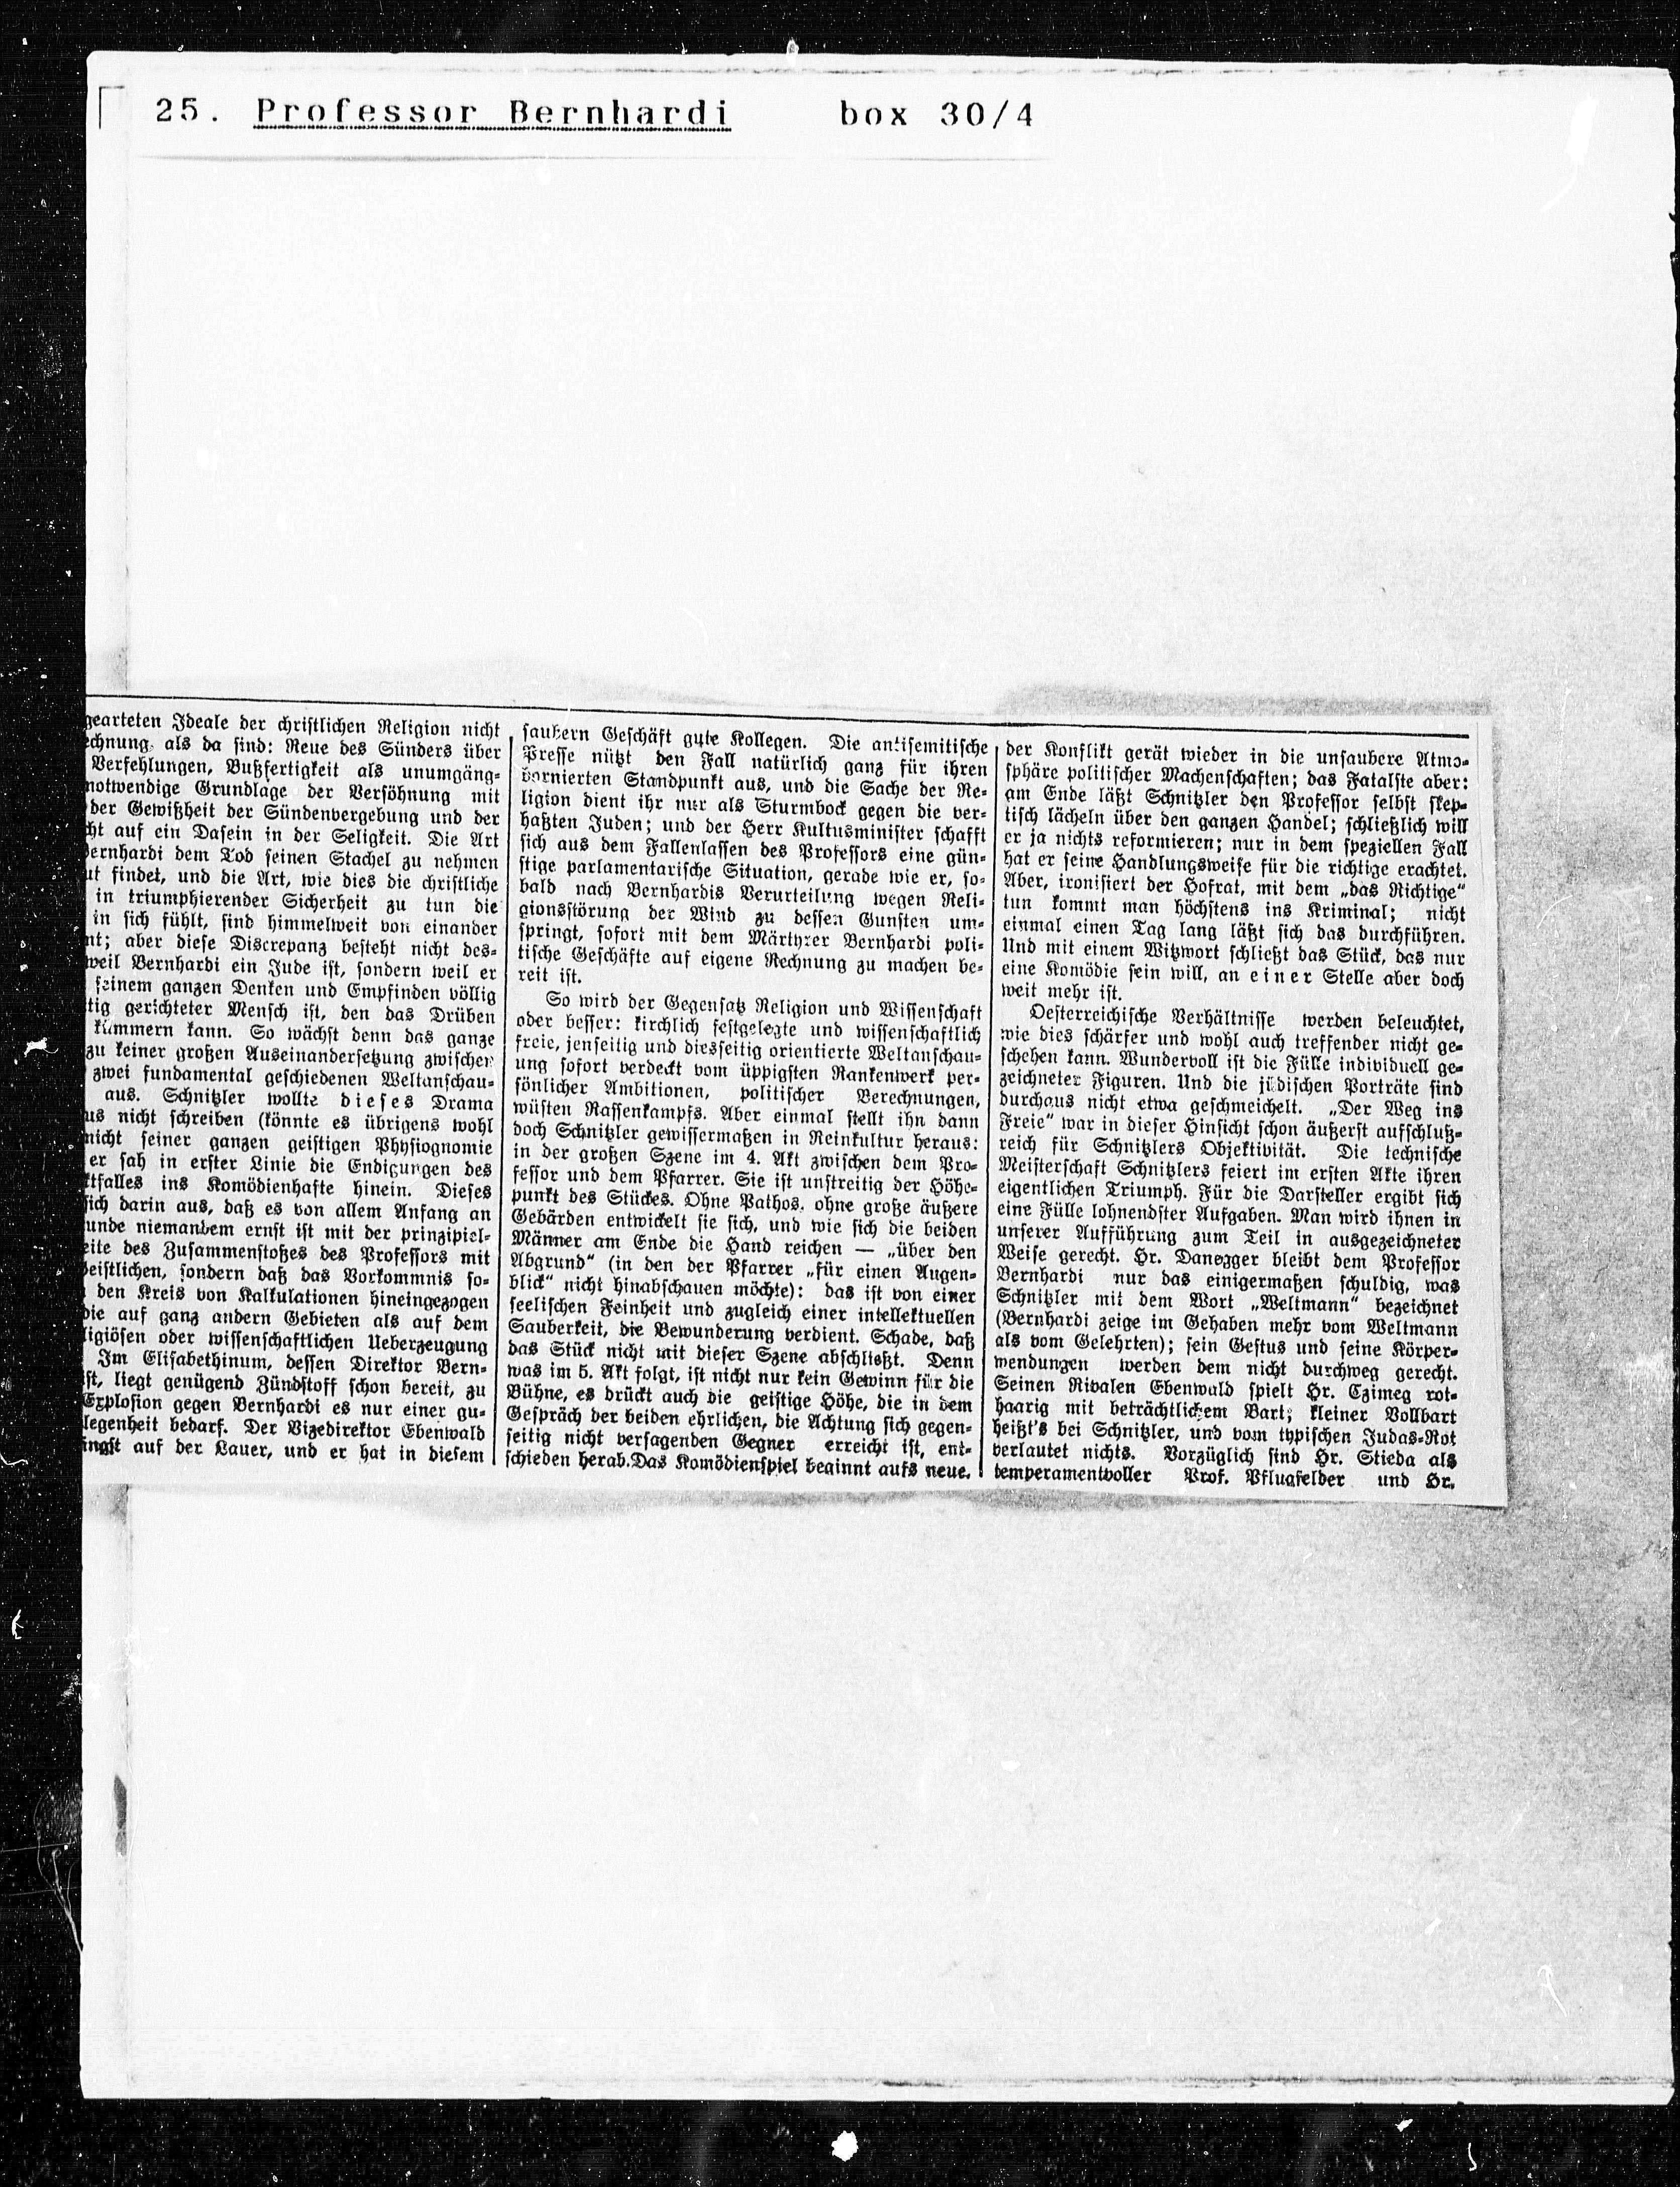 25. Professor Bernhardi box 30/4
gearteten Ideale der christlichen Religion nicht
echnung, als da sind: Reue des Sünders über
Verfehlungen, Bußfertigkeit als unumgäng-
notwendige Grundlage der Versöhnung mit
der Gewißheit der Sündenvergebung und der
cht auf ein Dasein in der Seligkeit. Die Art
Bernhardi dem Tod seinen Stachel zu nehmen
ut findet, und die Art, wie dies die christliche
in triumphierender Sicherheit zu tun die
in sich fühlt, sind himmelweit von einander
nt; aber diese Discrepanz besteht nicht des-
weil Bernhardi ein Jude ist, sondern weil er
seinem ganzen Denken und Empfinden völlig
tig gerichteter Mensch ist, den das Drüben
kümmern kann. So wächst denn das ganze
zu keiner großen Auseinandersetzung zwischen
zwei fundamental geschiedenen Weltanschau-
aus. Schnitzler wollte dieses Drama
us nicht schreiben (könnte es übrigens wohl
nicht seiner ganzen geistigen Physiognomie
er sah in erster Linie die Endigungen des
ktfalles ins Komödienhafte hinein. Dieses
sich darin aus, daß es von allem Anfang an
unde niemandem ernst ist mit der prinzipiel-
eite des Zusammenstoßes des Professors mit
Geistlichen, sondern daß das Vorkommnis so-
den Kreis von Kalkulationen hineingezogen
die auf ganz andern Gebieten als auf dem
ligiösen oder wissenschaftlichen Ueberzeugung
Im Elisabethinum, dessen Direktor Bern-
st, liegt genügend Zündstoff schon bereit, zu
Explosion gegen Bernhardi es nur einer gu-
legenheit bedarf. Der Vizedirektor Ebenwald
ingst auf der Lauer, und er hat in diesem
saubern Geschäft gute Kollegen. Die antisemitische
Presse nützt den Fall natürlich ganz für ihren
bornierten Standpunkt aus, und die Sache der Re-
ligion dient ihr nur als Sturmbock gegen die ver-
haßten Juden; und der Herr Kultusminister schafft
sich aus dem Fallenlassen des Professors eine gün-
stige parlamentarische Situation, gerade wie er, so-
bald nach Bernhardis Verurteilung wegen Reli-
gionsstörung der Wind zu dessen Gunsten um-
springt, sofort mit dem Märtyrer Bernhardi poli-
tische Geschäfte auf eigene Rechnung zu machen be-
reit ist.
So wird der Gegensatz Religion und Wissenschaft
oder besser: kirchlich festgelegte und wissenschaftlich
freie, jenseitig und diesseitig orientierte Weltanschau-
ung sofort verdeckt vom üppigsten Rankenwerk per-
sönlicher Ambitionen, politischer Berechnungen,
wüsten Rassenkampfs. Aber einmal stellt ihn dann
doch Schnitzler gewissermaßen in Reinkultur heraus:
in der großen Szene im 4. Akt zwischen dem Pro-
fessor und dem Pfarrer. Sie ist unstreitig der Höhe-
punkt des Stückes. Ohne Pathos, ohne große äußere
Gebärden entwickelt sie sich, und wie sich die beiden
Männer am Ende die Hand reichen — „über den
Abgrund“ (in den der Pfarrer „für einen Augen-
blick“ nicht hinabschauen möchte): das ist von einer
seelischen Feinheit und zugleich einer intellektuellen
Sauberkeit, die Bewunderung verdient. Schade, daß
das Stück nicht mit dieser Szene abschließt. Denn
was im 5. Akt folgt, ist nicht nur kein Gewinn für die
Bühne, es drückt auch die geistige Höhe, die in dem
Gespräch der beiden ehrlichen, die Achtung sich gegen-
seitig nicht versagenden Gegner erreicht ist, ent-
schieden herab. Das Komödienspiel beginnt aufs neue,
der Konflikt gerät wieder in die unsaubere Atmo-
sphäre politischer Machenschaften; das Fatalste aber:
am Ende läßt Schnitzler den Professor selbst skep-
tisch lächeln über den ganzen Handel; schließlich will
er ja nichts reformieren; nur in dem speziellen Fall
hat er seine Handlungsweise für die richtige erachtet.
Aber, ironisiert der Hofrat, mit dem „das Richtige“
tun kommt man höchstens ins Kriminal; nicht
einmal einen Tag lang läßt sich das durchführen.
Und mit einem Witzwort schließt das Stück, das nur
eine Komödie sein will, an einer Stelle aber doch
weit mehr ist.
Oesterreichische Verhältnisse werden beleuchtet,
wie dies schärfer und wohl auch treffender nicht ge-
schehen kann. Wundervoll ist die Fülle individuell ge-
zeichneter Figuren. Und die jüdischen Porträte sind
durchaus nicht etwa geschmeichelt. „Der Weg ins
Freie“ war in dieser Hinsicht schon äußerst aufschluß-
reich für Schnitzlers Objektivität. Die technische
Meisterschaft Schnitzlers feiert im ersten Akte ihren
eigentlichen Triumph. Für die Darsteller ergibt sich
eine Fülle lohnendster Aufgaben. Man wird ihnen in
unserer Aufführung zum Teil in ausgezeichneter
Weise gerecht. Hr. Danegger bleibt dem Professor
Bernhardi nur das einigermaßen schuldig, was
Schnitzler mit dem Wort „Weltmann“ bezeichnet
(Bernhardi zeige im Gehaben mehr vom Weltmann
als vom Gelehrten); sein Gestus und seine Körper-
wendungen werden dem nicht durchweg gerecht.
Seinen Rivalen Ebenwald spielt Hr. Czimeg rot-
haarig mit beträchtlichem Bart; kleiner Vollbart
heißt's bei Schnitzler, und vom typischen Judas-Rot
verlautet nichts. Vorzüglich sind Hr. Stieda als
temperamentvoller Prof. Pflugfelder und Hr.